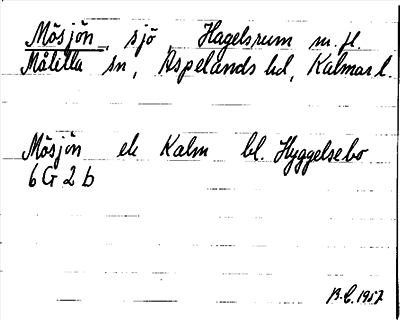 Mösjön, sjö, Hagelsrum m.fl.
Målilla sn, Aspelands hd, Kalmar l.
Mösjön ek Kalm bl. Hyggelsebo
6G2b
B.L. 1957